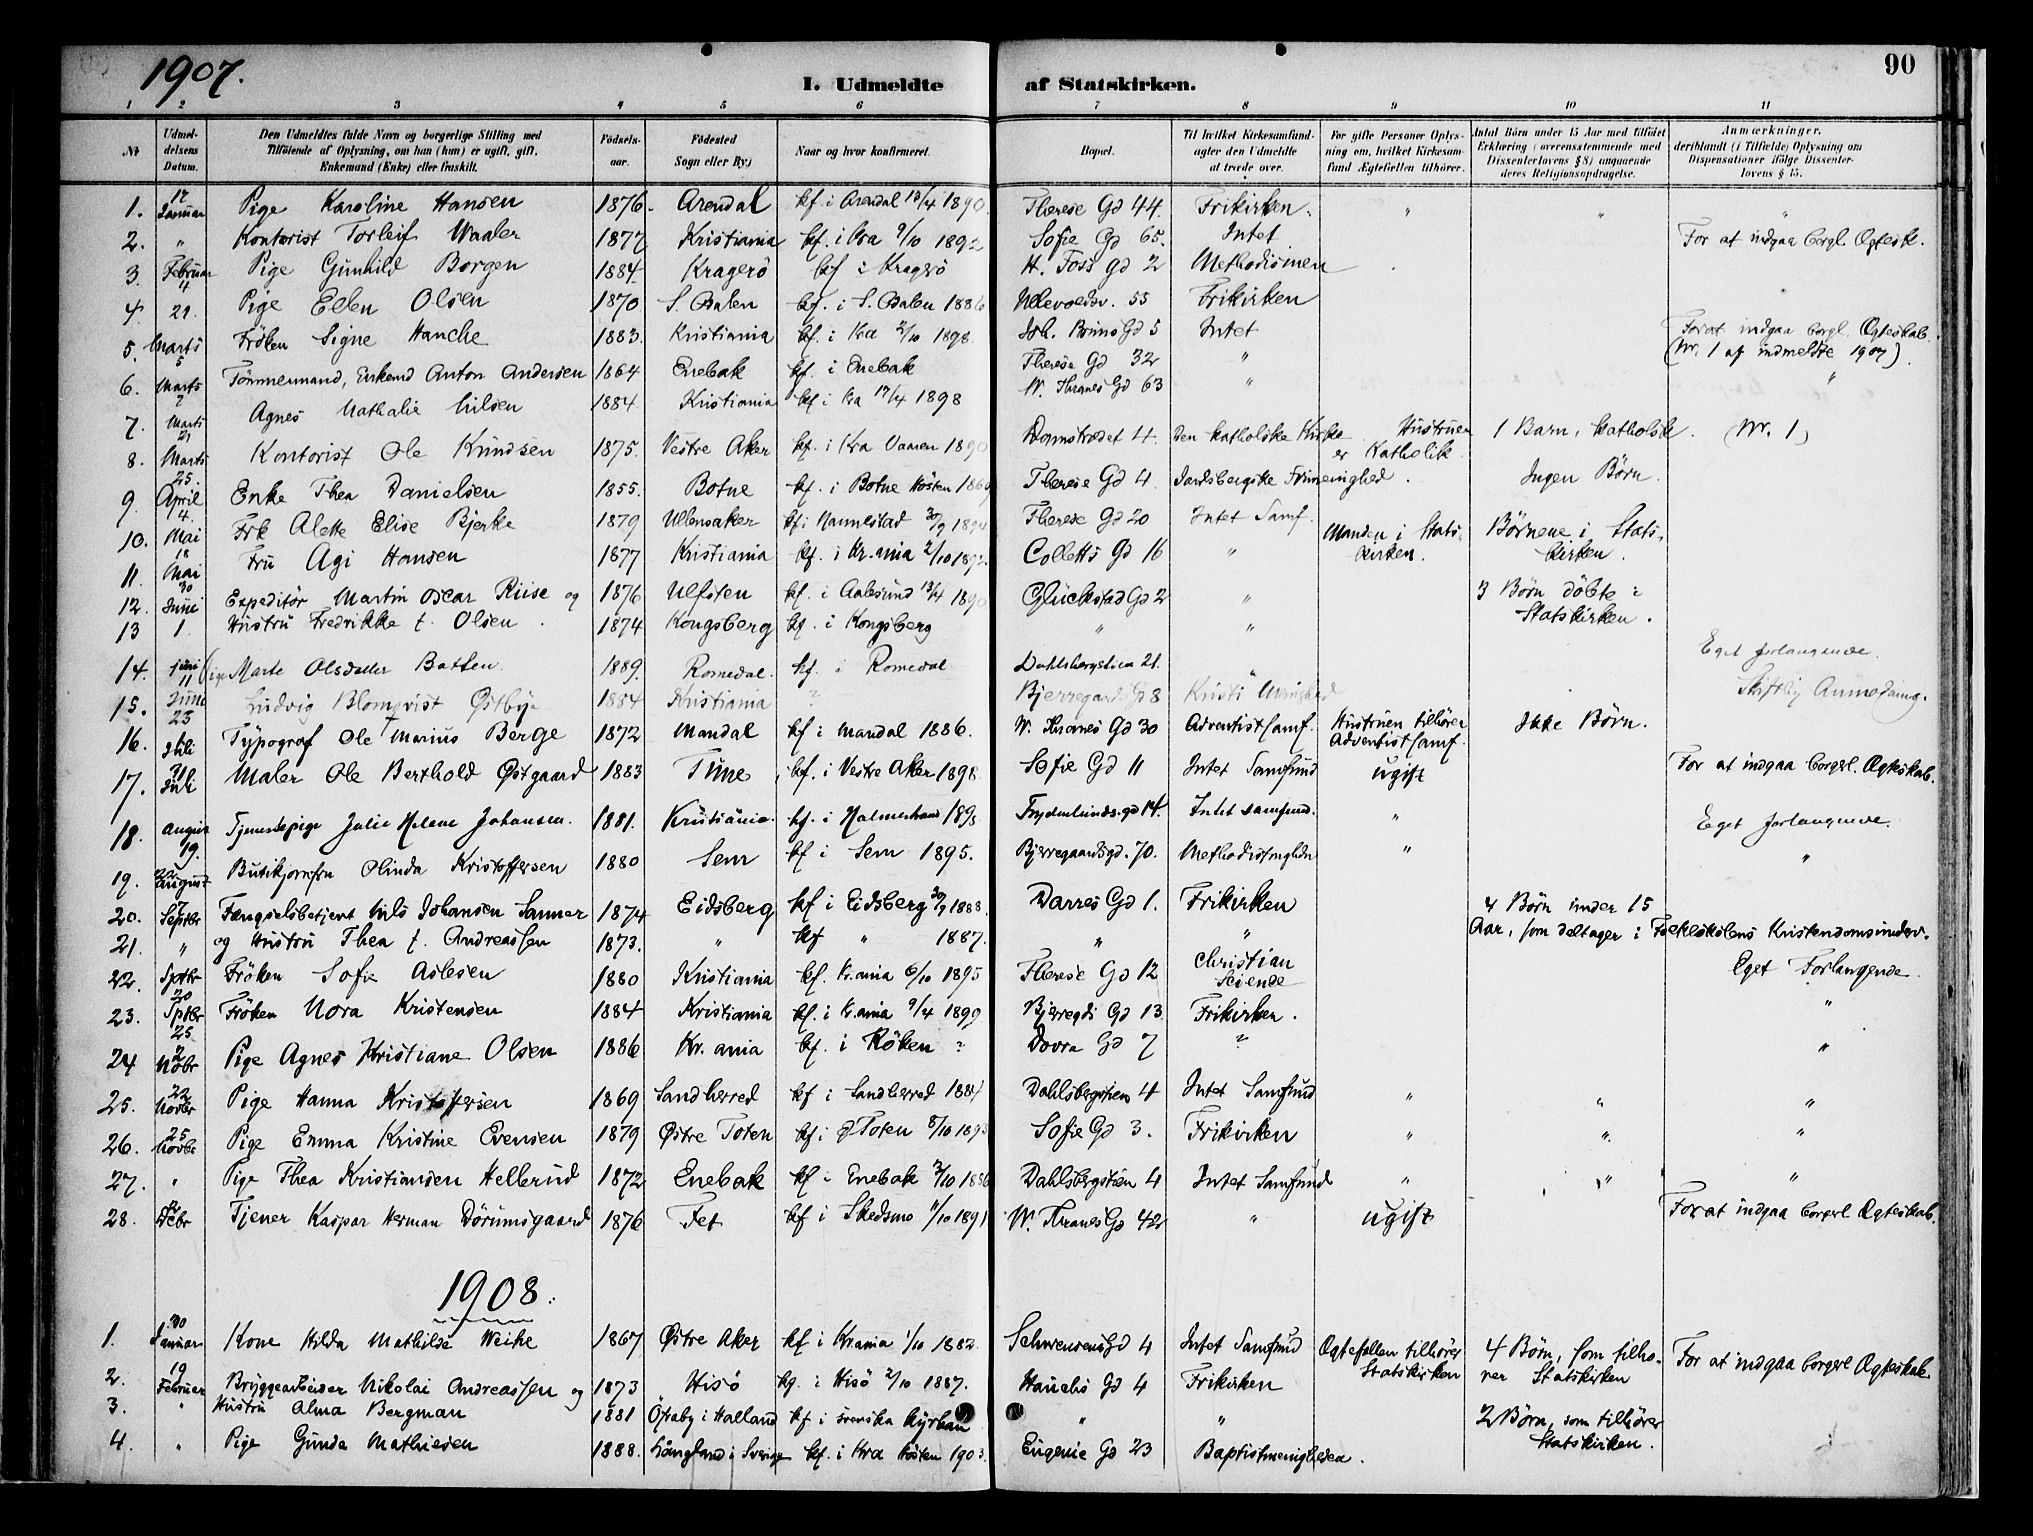 1907.
I. Udmeldte af Statskirken.
90
1 2 3 4 5 6 7 8 9 10 11
No
Udmeldelsens Datum.
Den Udmeldtes fulde Navn og borgerlige Stilling med Tilføiende af Oplysning, om han (hun) er ugift, gift, Enkemand (Enke) eller fraskilt.
Fødselsaar.
Fødested Sogn eller By.)
Naar og hvor konfirmeret.
Bopæl.
Til hvilket Kirkesamfund agter den Udmeldte at træde over.
For gifte Personer Oplysning om, hvilket Kirkesamfund Ægtefællen tilhører.
Antal Børn under 15 Aar med tilføiet Erklæring (overensstemmende med Dissenterlovens § 8) angaaende deres Religionsopdragelse.
Anmærkninger, deriblandt (i Tilfælde) Oplysning om Dispensationer ifølge Dissenterlovens § 15.
1. 17 Januar Pige Karoline Hansen 1876. Arendal kf. i Arendal 13/4 1890. Therese Gd 44. Frikirken. " " "
2. " Kontorist Torleif Waaler 1877 Kristiania kf. i Kra 9/10 1892 Sofie Gd 65. Intet For at indgaa borgl. Ægtesk.
3. Februar 4 Pige Gunhild Borgen 1884 Kragerö kf i Kragerö H. Foss Gd 2 Methodismen
4 21. Pige Ellen Olsen 1870 S. Odalen kf. i S. Odalen 1886 Ullevoldsv. 55 Frikirken
5. Marts 5 Fröken Signe Hanche 1883. Kristiania kf. i Kra 2/10 1898 Joh. Bruns Gd 5 Intet For at indgaa borgl. Ægteskab. (Nr. 1 af indmeldte 1907).
6. Marts 7 Tömmermand, Enkemd Anton Andersen 1864 Enebak kf. i Enebak Therese Gd 32 " "
7. Marts 21 Agnes Mathalie Nilsen 1884 Kristiania kf i Kra 17/4 1898 W. Thranes Gd 63 "
8. Marts 25. Kontorist Ole Knudsen 1875. Vestre Aker kf. i Kra Vaaren 1890 Damstrædet 4. Den katholske Kirke Hustruen er Katholik 1 Barn, katholsk. (Nr. 1)
9. April 4. Enke Thea Danielsen 1855. Botne kf. i Botne Hösten 1869 Therese Gd 4. Jarlsbergske Frimenighed. Ingen Börn.
10. Mai 18 Frk Alette Elise Bjerke 1879 Ullensaker kf i Nannestad 30/9 1894 Therese Gd 20 Intet Samf.
11. Mai 30 Fru Agi Hansen 1877 Kristiania kf. i Kr.ania 2/10 1892. Colletts Gd 16 " Manden i Statskirken. Börnene i Statskirken.
12. Juni Expeditör Martin Oscar Riise og 1876 Ulfsten kf. i Aalesund 13/4 1890 Glückstad Gd 2 " 3 Börn döbte i Statskirken.
13 1. Hustru Fredrikke f. Olsen. 1874 Kongsberg kf. i Kongsberg " "
14. juni 11 Pige Marte Olsdatter Batten 1889. Romedal. kf. i Romedal Dahlsbergstien 21. " Eget forlangende.
15. Juni 23 Ludvig Blomqvist Østbye 1884 Kristiania ? Bjerregards Gd 8 Kristi Menighed Skriftlig Anmodning.
16. Juli Typograf Ole Marius Berge 1872 Mandal kf i Mandal 1886. W. Thranes Gd 30 Adventistsamf. Hustruen tilhörer Adventistsamf. Ikke Börn.
17. 31 Juli Maler Ole Berthold Østgaard 1883 Tune kf. i Vestre Aker 1898 Sofie Gd 11 Intet Samfund ugift For at indgaa borgerl. Ægteskab.
18. august 19. Tjenestepige Julie Helene Johansen. 1881. Kristiania. kf. i Holmestrand Frydenlundsgd 14. Intet samfund. " Eget forlangende.
19. 22 august Olinda Kristoffersen 1880 Sem kf i Sem 1895. Bjerregaardsgd. 70. " "
20. 7 Septbr Fængselsbetjent Nils Johansen Sanner 1874 Eidsberg kf i Eidsberg 30/9 1888. Darres Gd 1. Frikirken 4 Börn under 15
21. " og Hustru Thea f. Andreassen 1873. " kf " 1887. " " Aar, som deltager i Folkeskolens Kristendomsunderv.
22. Sptbr 20 Fröken Sofie Aslesen 1880 Kristiania kf. Kr.ania 6/10 1895 Therese Gd 12 Christian Sciende Eget Forlangende.
23. Sptbr 25 Fröken Nora Kristensen 1884 Kristiania kf. i Kr.ania 9/4 1899 Bjerregds Gd 13 Frikirken. "
24 2 Nobr Pige Agnes Kristiane Olsen 1886 Kr.ania kf. i Röken ? Dovre Gd 7 ? "
25. 22 Novbr Pige Hanna Kristoffersen 1869 Sandherred kf i Sandherred 1884 Dahlsbergstien 4 Intet Samfund " " "
26. 25 Novbr Pige Emma Kristine Evensen 1879 Østre Toten kf i Ø Toten 8/10 1893 Sofie Gd 3. Frikirken " " "
27. " Pige Thea Kristiansen Hellerud 1872 Enebak kf i Enebak 3/10 1886 Dahlsbergstien 4 Intet Samfund " " "
28. 12 Debr Tjener Kaspar Herman Dörumsgaard 1876 Fet kf i Skedsmo 11/10 1891 W. Thranes Gd 42 " ugift For at indgaa borgerl Ægteskab.
1908.
1. 30 Januar Kone Hilda Mathilde Weihe 1867 Østre Aker kf i Kr.ania 1/10 1882. Schwensens Gd 4 Intet Samfund Ægtefellen tilhörer Statskirken 4 Börn, som tilhörer Statskirken For at indgaa borgerl Ægteskab.
2. 19 Februar Bryggearbeider Nikolai Andreassen og 1873 Hisö kf. i Hisö 2/10 1887. Hauchs Gd 4 Frikirken
3. " Hustru Alma Bergman 1881 Öfraby i Halland kf i svenska kyrkan " " 2 Börn, som tilhörer Statskirken.
4. " Pige Gunda Mathiesen 1888. i Sverige kf. i Kra Hösten 1903. Eugenie Gd 23 Baptistmenigheden.